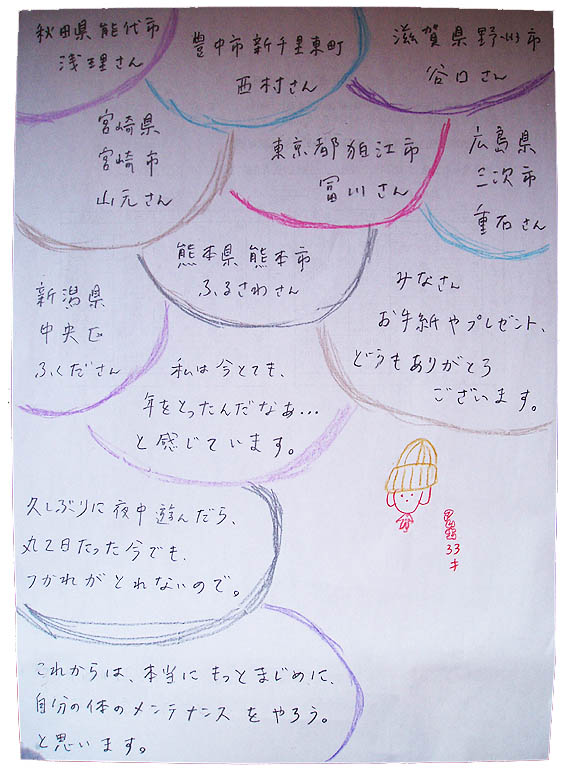 秋田県能代市
浅理さん
豊中市新千里東町
西村さん
滋賀県野洲市
谷口さん
宮崎県
宮崎市
山元さん
東京都狛江市
冨川さん
広島県
三次市
重石さん
熊本県熊本市
ふるさわさん
新潟県
中央区
ふくださん
みなさん
お手紙やプレゼント、
どうもありがとう
ございます。
私は今とても、
年をとったんだなあ…
と感じています。
久しぶりに夜中遊んだら、
丸2日たった今でも、
つかれがとれないので。
33
才
これからは、本当にもっとまじめに、
自分の体のメンテナンスをやろう。
と思います。